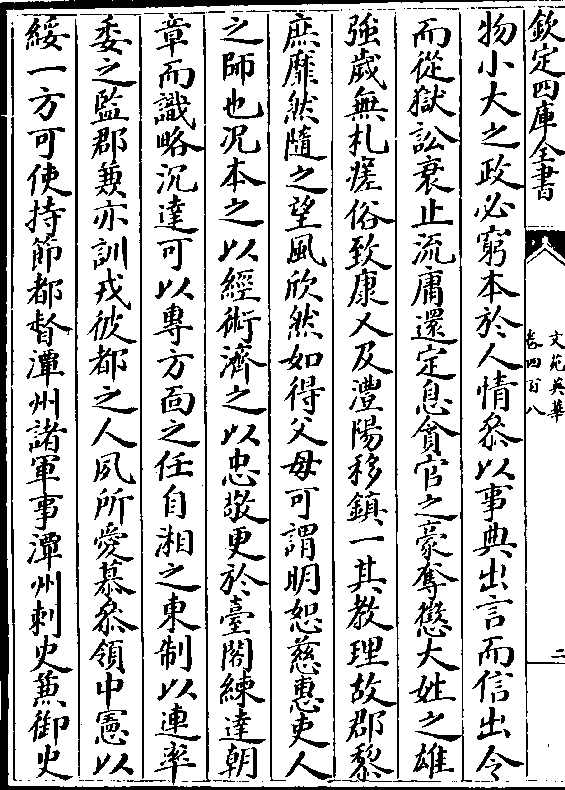 欽定四庫全書
文苑英華
卷四百八
二
物小大之政必窮本於人情叅以事典出言而信出令
而從獄訟衰止流庸還定息貪官之豪奪懲大姓之雄
強歲無札瘥俗致康乂及澧陽移鎮一其教理故郡黎
庶靡然隨之望風欣然如得父母可謂明恕慈惠吏人
之師也况本之以經術濟之以忠敬更於臺閣練達朝
章而識略沉達可以專方面之任自湘之東制以連率
委之監郡兼亦訓戎彼都之人夙所愛慕叅領中憲以
綏一方可使持節都督潭州諸軍事潭州刺史兼御史